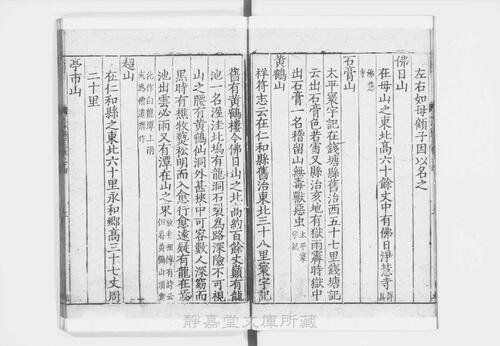 左右如母顧子因以名之
佛日山
在母山之東北高六十餘丈中有佛日淨慧寺詳具
佛慧寺
石膏山
太平寰宇記在錢塘縣舊治西五十七里錢塘記
云出石膏色若雪又縣治亥地有獄雨霽時獄中
出石膏一名稽留山無毒獸惡虫太平寰宇記
黃鶴山
祥符志云在仁和縣舊治東北三十八里寰宇記
舊有黃鶴樓今佛日山之北高約百餘丈巔有龍
池一名渥洼北塢有龍洞石裂爲路深險不可視
山之腰有黃鶴仙洞外甚狹中可容數人深窈而
黑時有樵牧燃松明而入愈行愈遠疑有龍在焉
池出雲必雨又有潭在山之東故老相傳有詩云但看黃鶴山頂雲
化作白龍潭上雨
超山
在仁和縣之東北六十里永和鄉高三十七丈周
二十里
亭市山
靜嘉堂文庫所藏